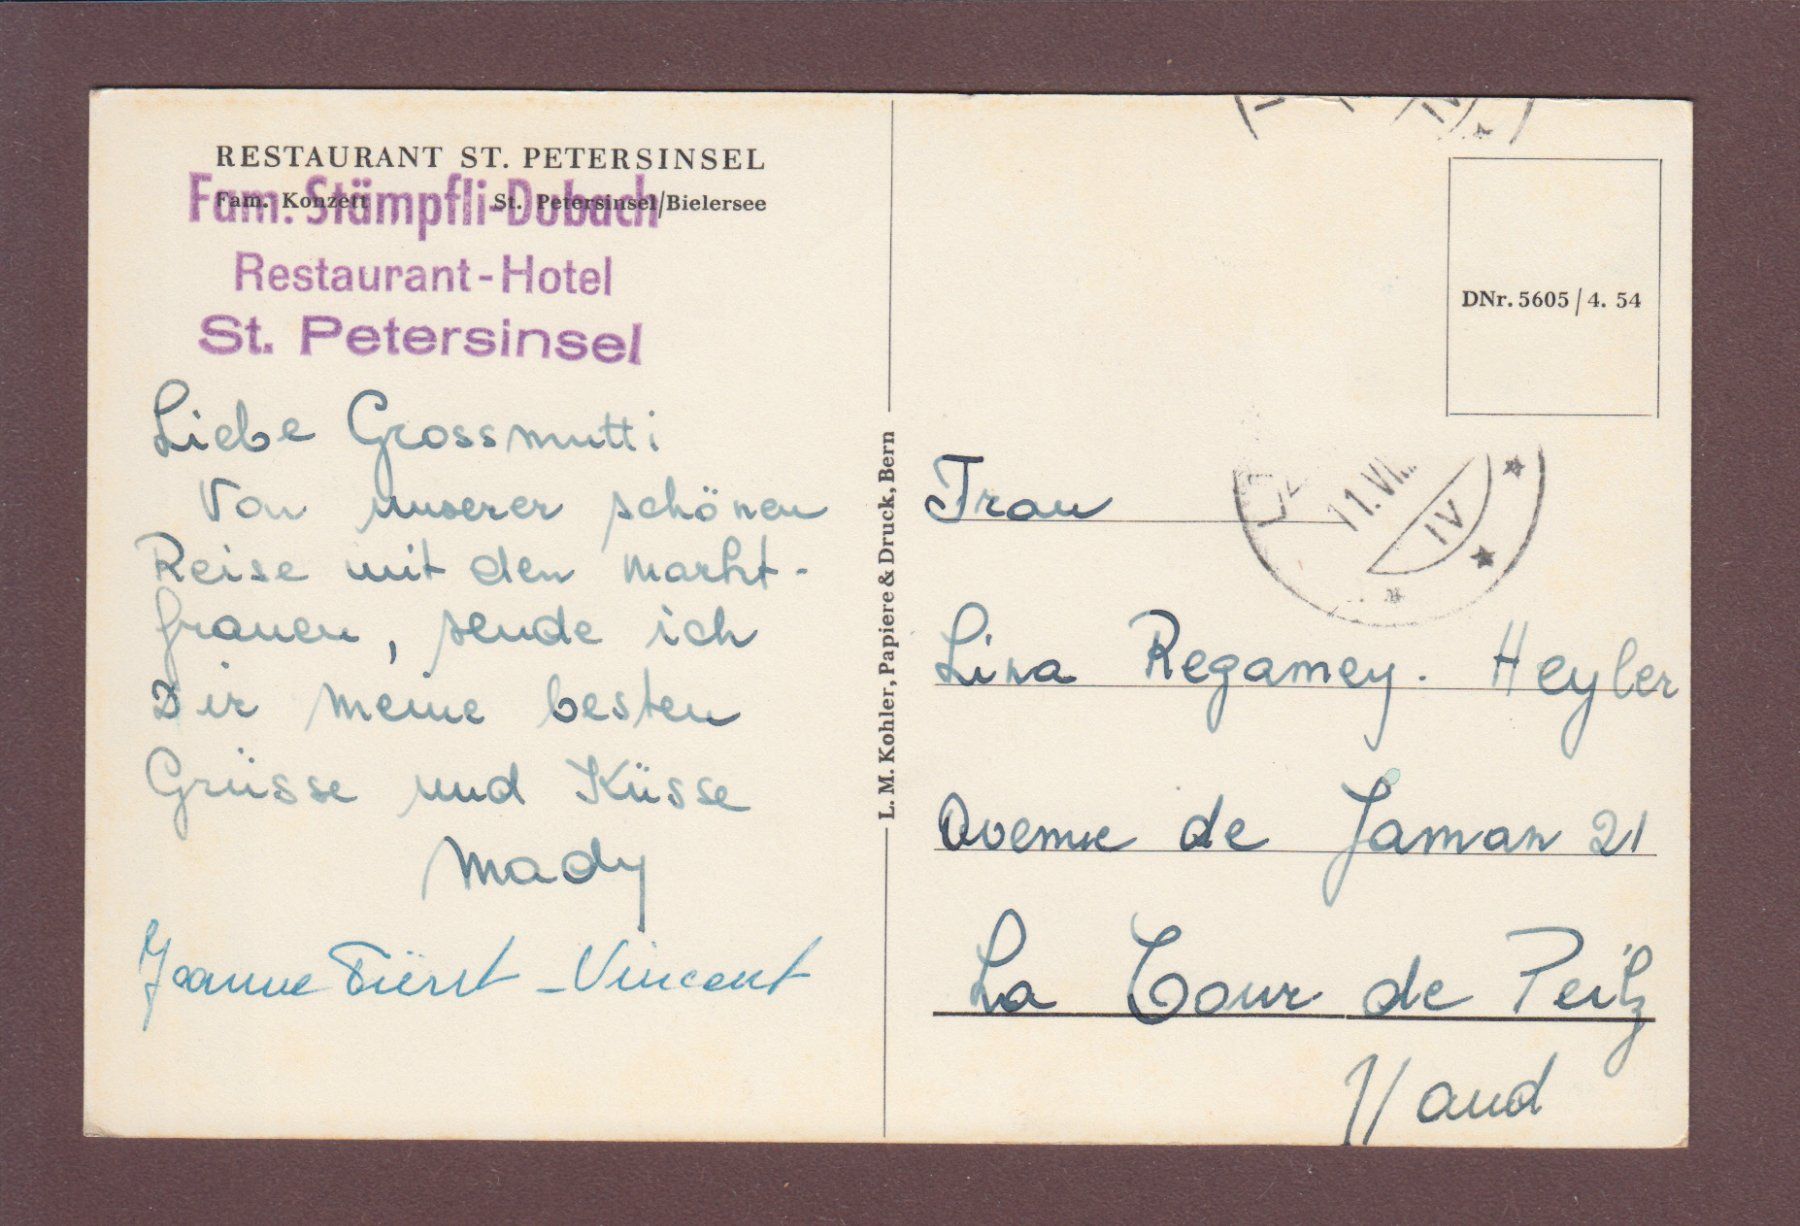 RESTAURANT ST. PETERSINSEL
Fam. Konzett St. Petersinsel/Bielersee
Fam. Stämpfli-Dubach
Restaurant-Hotel
St. Petersinsel
Liebe Grossmutti
Von unserer schönen
Reise mit den Markt-
frauen, sende ich
Dir meine besten
Grüsse und Küsse
Mady
Jeanne
-Vincent
L. M. Kohler, Papiere & Druck, Bern
DNr. 5605 / 4. 54
11.VII.
IV
Frau
Lina Regamey. Heyler
Avenue de Jaman 21
La Tour de Peilz
Vaud